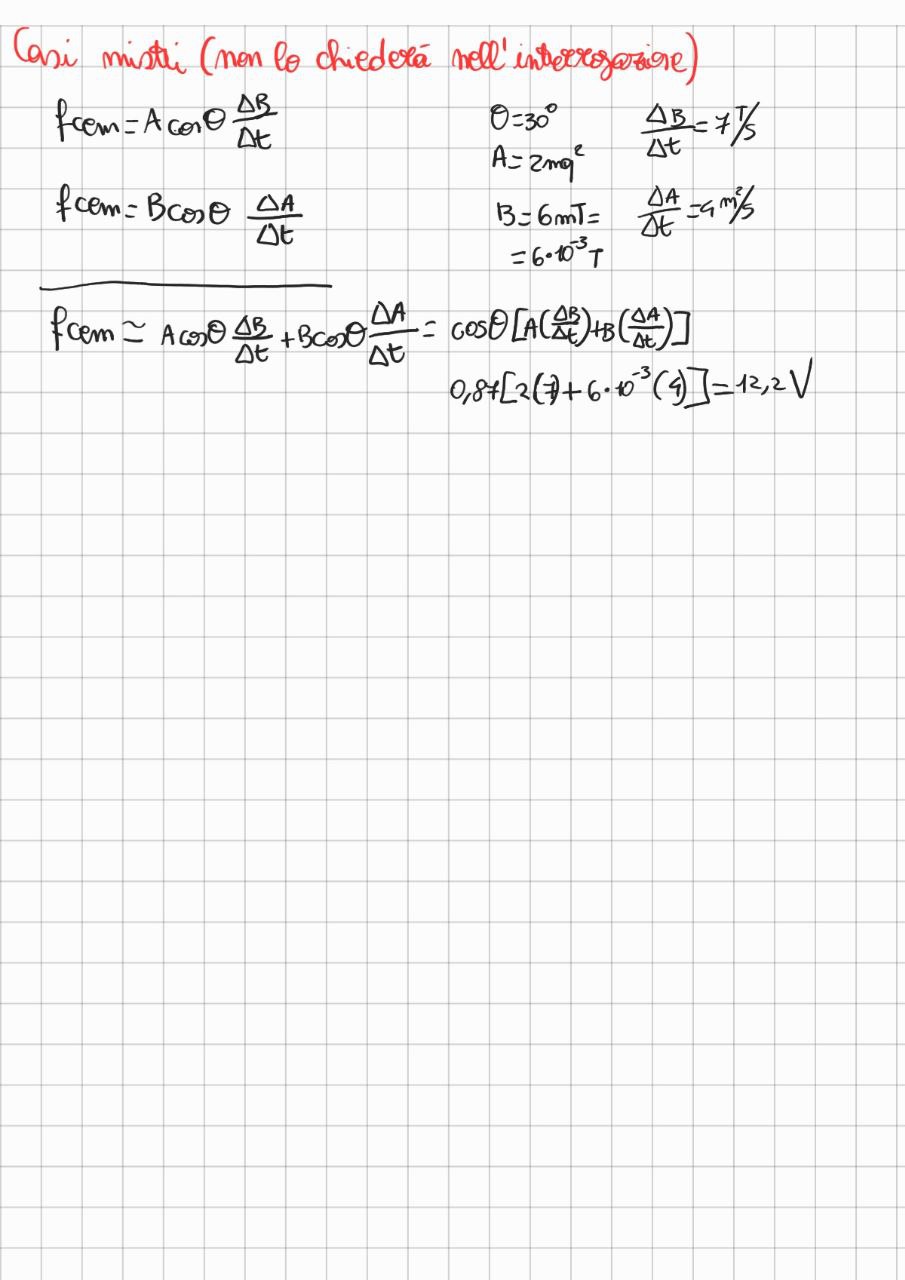 Casi misti (non lo chiederá nell'interrogazione)
fcem = A cosθ ΔB/Δt
θ=30° ΔB/Δt = 7 T/s
A = 2mq²
fcem = B cosθ ΔA/Δt
B = 6mT = ΔA/Δt = 4 m²/s
= 6·10⁻³ T
fcem ≃ A cosθ ΔB/Δt + B cosθ ΔA/Δt = cosθ [A(ΔB/Δt)+B(ΔA/Δt)]
0,87[2(7)+6·10⁻³(4)] = 12,2 V